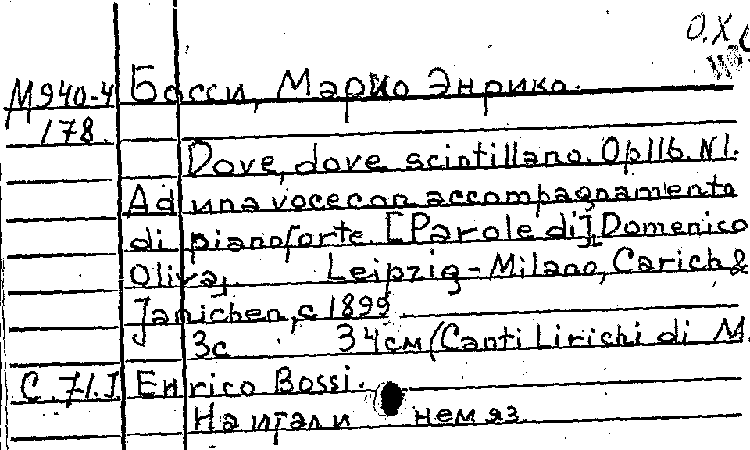 О.Х.
М940-4 Босси, Марио Энрико.
178.
Dove, dove scintillano. Op116. N1.
Ad una voce con accompagnamento
di pianoforte. [Parole di] Domenico
Oliva. Leipzig-Milano, Carich &
Janichen, c 1899
3с 34см (Canti Lirichi di M.
С.71.I Enrico Bossi.
На итал и нем яз